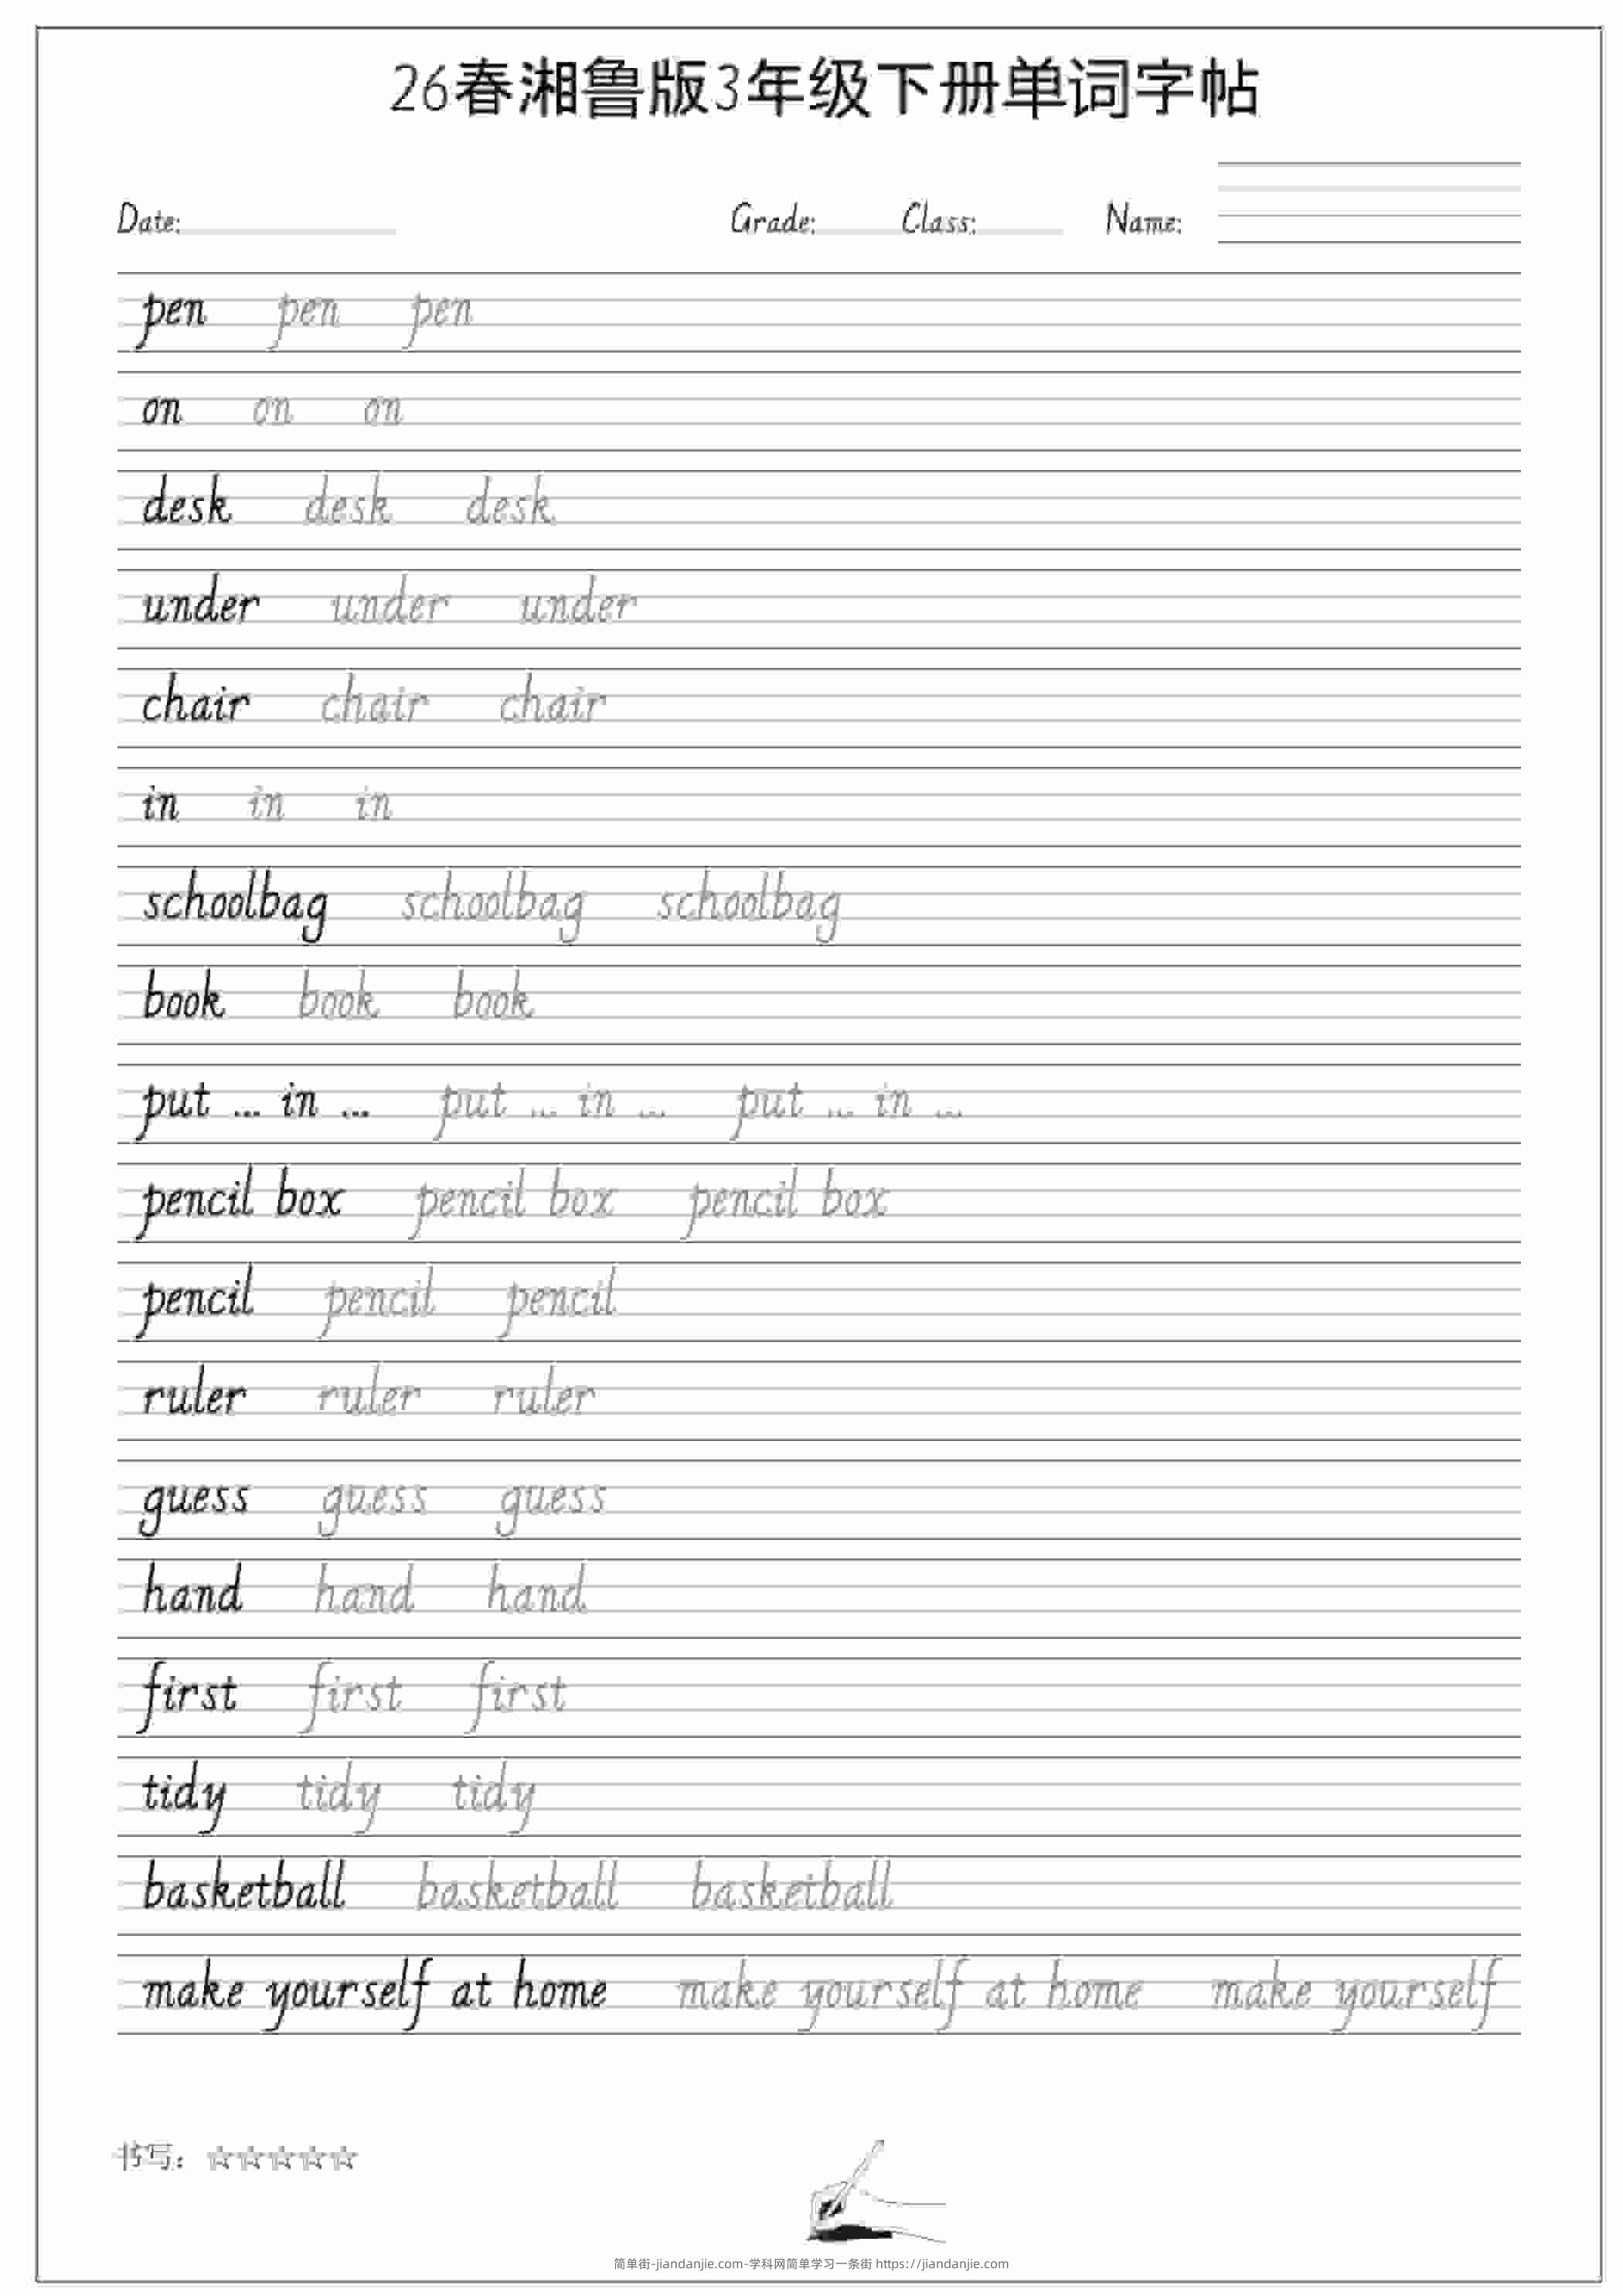 26春湘鲁版3年级下册单词字帖
Date: Grade: Class: Name:
pen pen pen
on on on
desk desk desk
under under under
chair chair chair
in in in
schoolbag schoolbag schoolbag
book book book
put ... in ... put ... in ... put ... in ...
pencil box pencil box pencil box
pencil pencil pencil
ruler ruler ruler
guess guess guess
hand hand hand
first first first
tidy tidy tidy
basketball basketball basketball
make yourself at home make yourself at home make yourself
书写：☆☆☆☆☆
简单街-jiandanjie.com-学科网简单学习一条街 https://jiandanjie.com